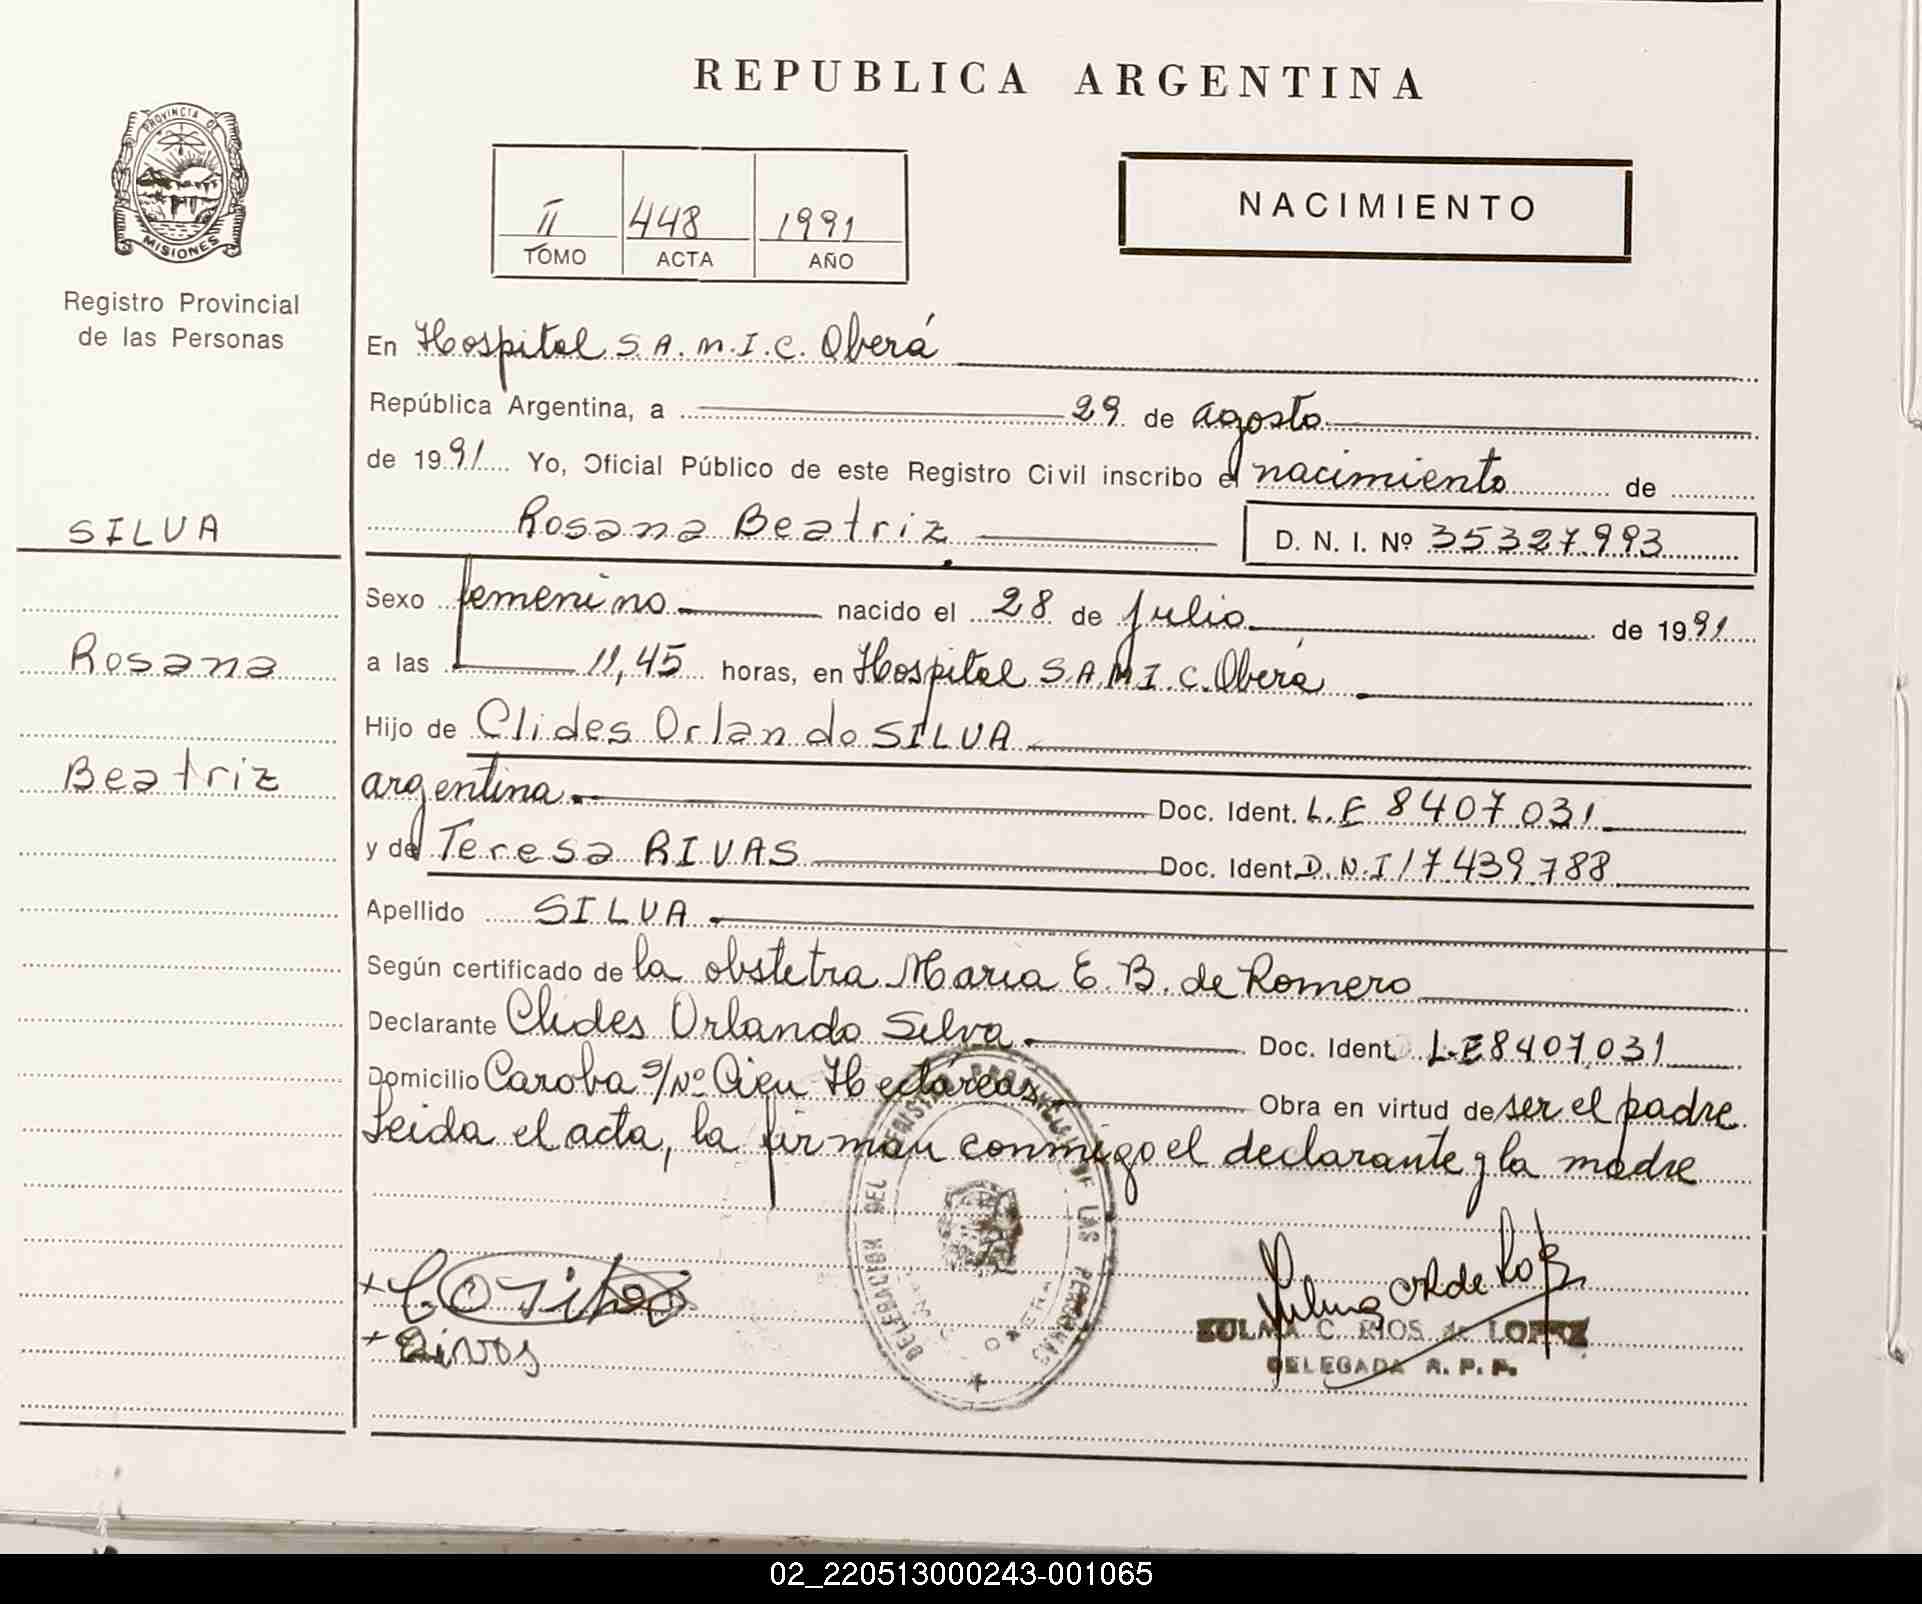 REPUBLICA ARGENTINA
PROVINCIA DE
MISIONES
Registro Provincial
de las Personas
II 448 1991
TOMO ACTA AÑO
NACIMIENTO
En Hospital S.A.M.I.C. Oberá
República Argentina, a 29 de agosto
de 1991 Yo, Oficial Público de este Registro Civil inscribo el nacimiento de
Rosana Beatriz D. N. I. Nº 35327993
SILVA
Rosana
Beatriz
Sexo femenino nacido el 28 de julio de 1991
a las 11,45 horas, en Hospital S.A.M.I.C. Oberá
Hijo de Clides Orlando SILVA
argentina. Doc. Ident. L.E 8407031
y de Teresa RIVAS Doc. Ident. D.N.I 17.439.788
Apellido SILVA
Según certificado de la obstetra Maria E. B. de Romero
Declarante Clides Orlando Silva Doc. Ident. L.E 8407031
Domicilio Caroba s/Nº Cien Hectáreas Obra en virtud de ser el padre
Leida el acta, la firman conmigo el declarante y la madre
DELEGACION DEL REGISTRO PROVINCIAL DE LAS PERSONAS
ZULMA C. RIOS de LOPEZ
DELEGADA R. P. P.
02_220513000243-001065